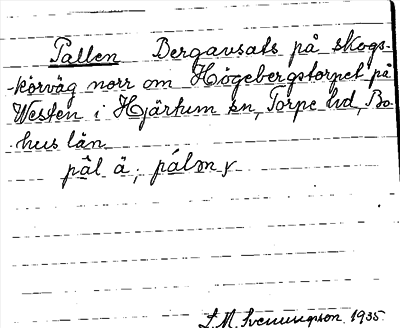 Pallen Bergavsats på skogs-
-körväg norr om Högebergstorpet på
Westen i Hjärtum sn, Torpe hd, Bo-
hus län.
pàl ä; pálæn
L. M. Svenungsson 1935